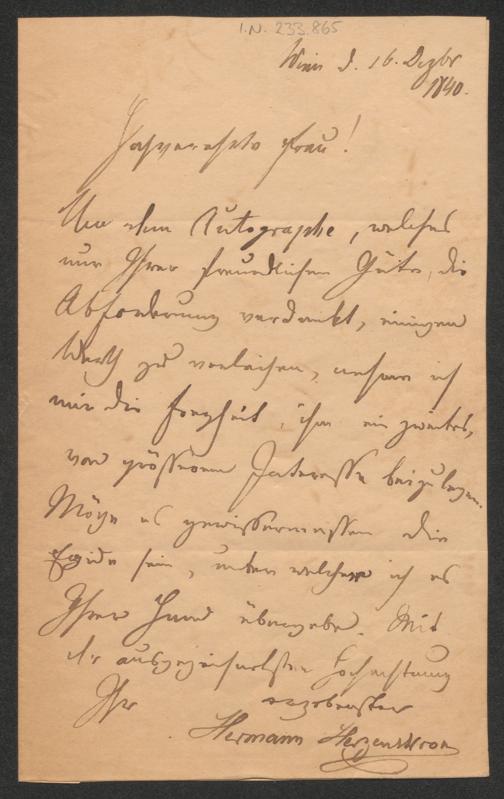 I.N. 233.865
Wien d. 16. Dezbr
1840.
Hochverehrte Frau!
Um dem Autographe, welches
nur Ihrer freundlichen Güte, die
Abforderung verdankt, einigen
Werth zu verleihen, nehme ich
mir die Freyheit, ihm ein zweites,
von grösserem Interesse beizulegen.
Möge es gewissermassen die
Egide sein, unter welcher ich es
Ihrer Hand übergebe. Mit
der ausgezeichnetsten Hochachtung
Ihr ergebenster
Hermann Herzenskron